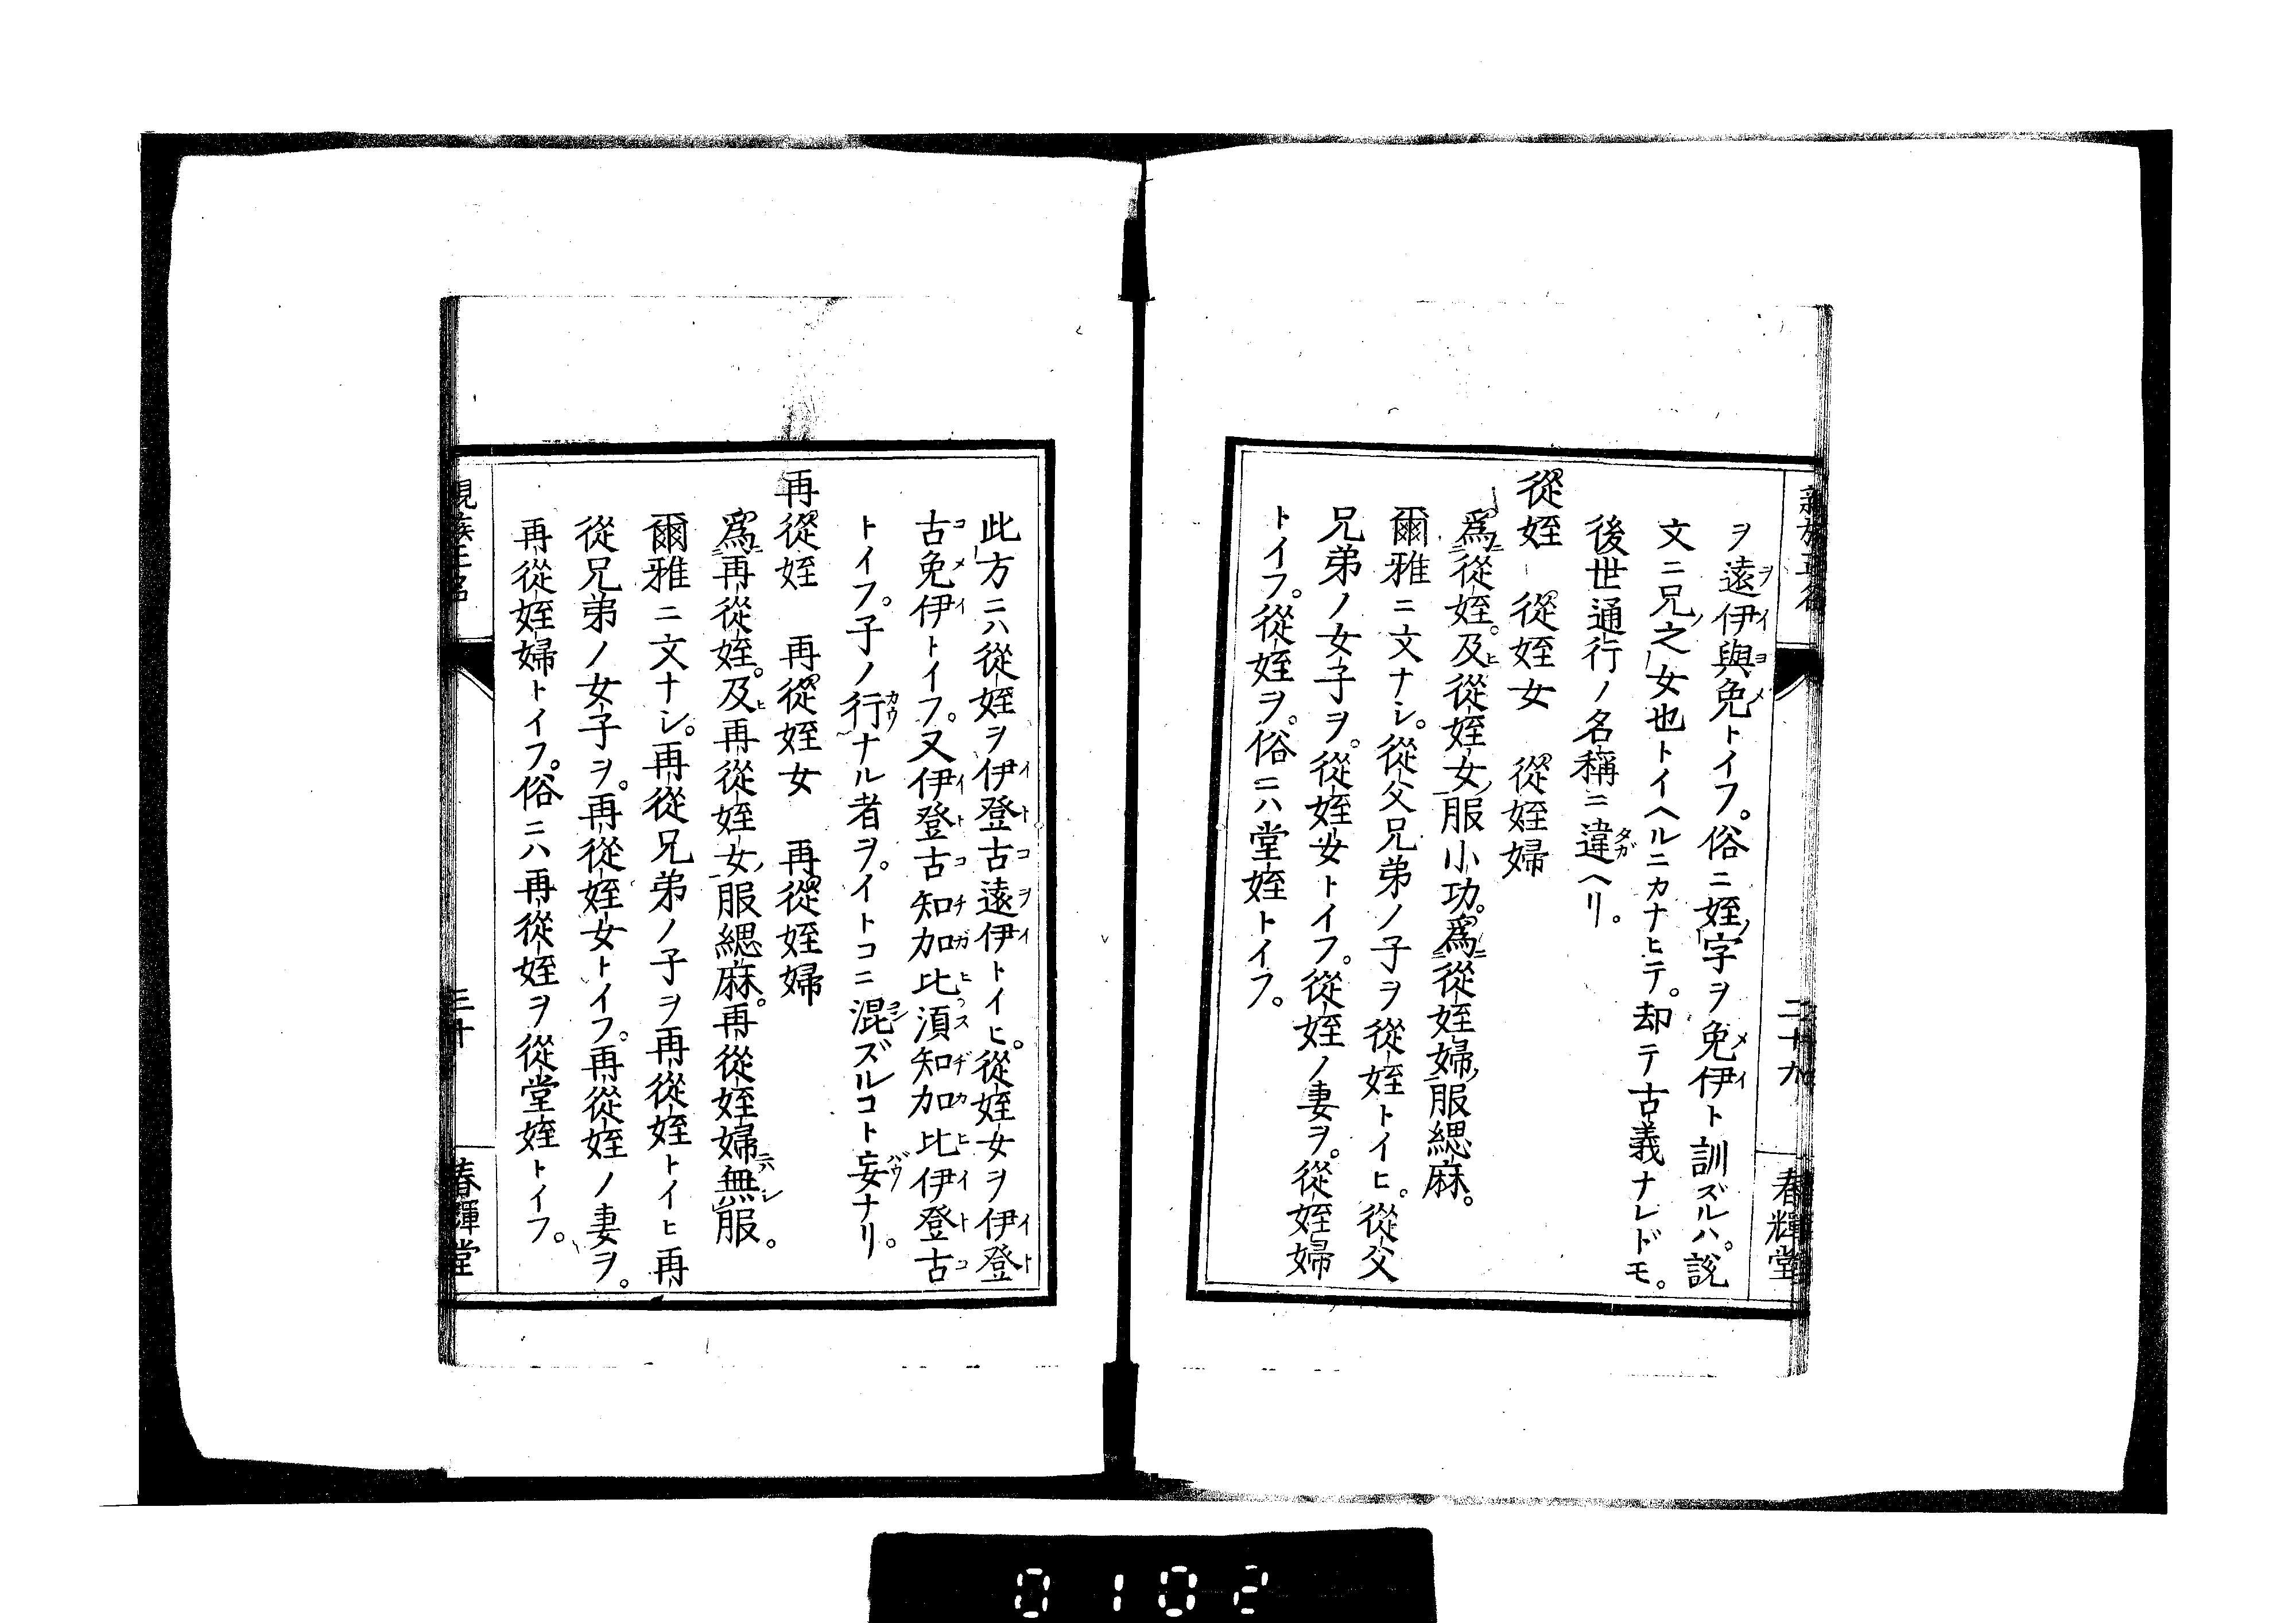 親族正名
二十九
春輝堂
ヲ遠伊與免トイフ。俗ニ姪ノ字ヲ免伊ト訓ズルハ。説
文ニ兄之女也トイヘルニカナヒテ。却テ古義ナレドモ。
後世通行ノ名稱ニ違ヘリ。
從姪　從姪女　從姪婦
爲從姪。及從姪女服小功。爲從姪婦服緦麻。
爾雅ニ文ナシ。從父兄弟ノ子ヲ從姪トイヒ。從父
兄弟ノ女子ヲ。從姪女トイフ。從姪ノ妻ヲ。從姪婦
トイフ。從姪ヲ。俗ニハ堂姪トイフ。
此方ニハ從姪ヲ伊登古遠伊トイヒ。從姪女ヲ伊登
古免伊トイフ。又伊登古知加比須知加比伊登古
トイフ。子ノ行ナル者ヲ。イトコニ混ズルコト妄ナリ。
再從姪　再從姪女　再從姪婦
爲再從姪。及再從姪女服緦麻。再從姪婦無服。
爾雅ニ文ナシ。再從兄弟ノ子ヲ再從姪トイヒ再
從兄弟ノ女子ヲ。再從姪女トイフ。再從姪ノ妻ヲ。
再從姪婦トイフ。俗ニハ再從姪ヲ從堂姪トイフ。
親族正名
三十
春輝堂
0102